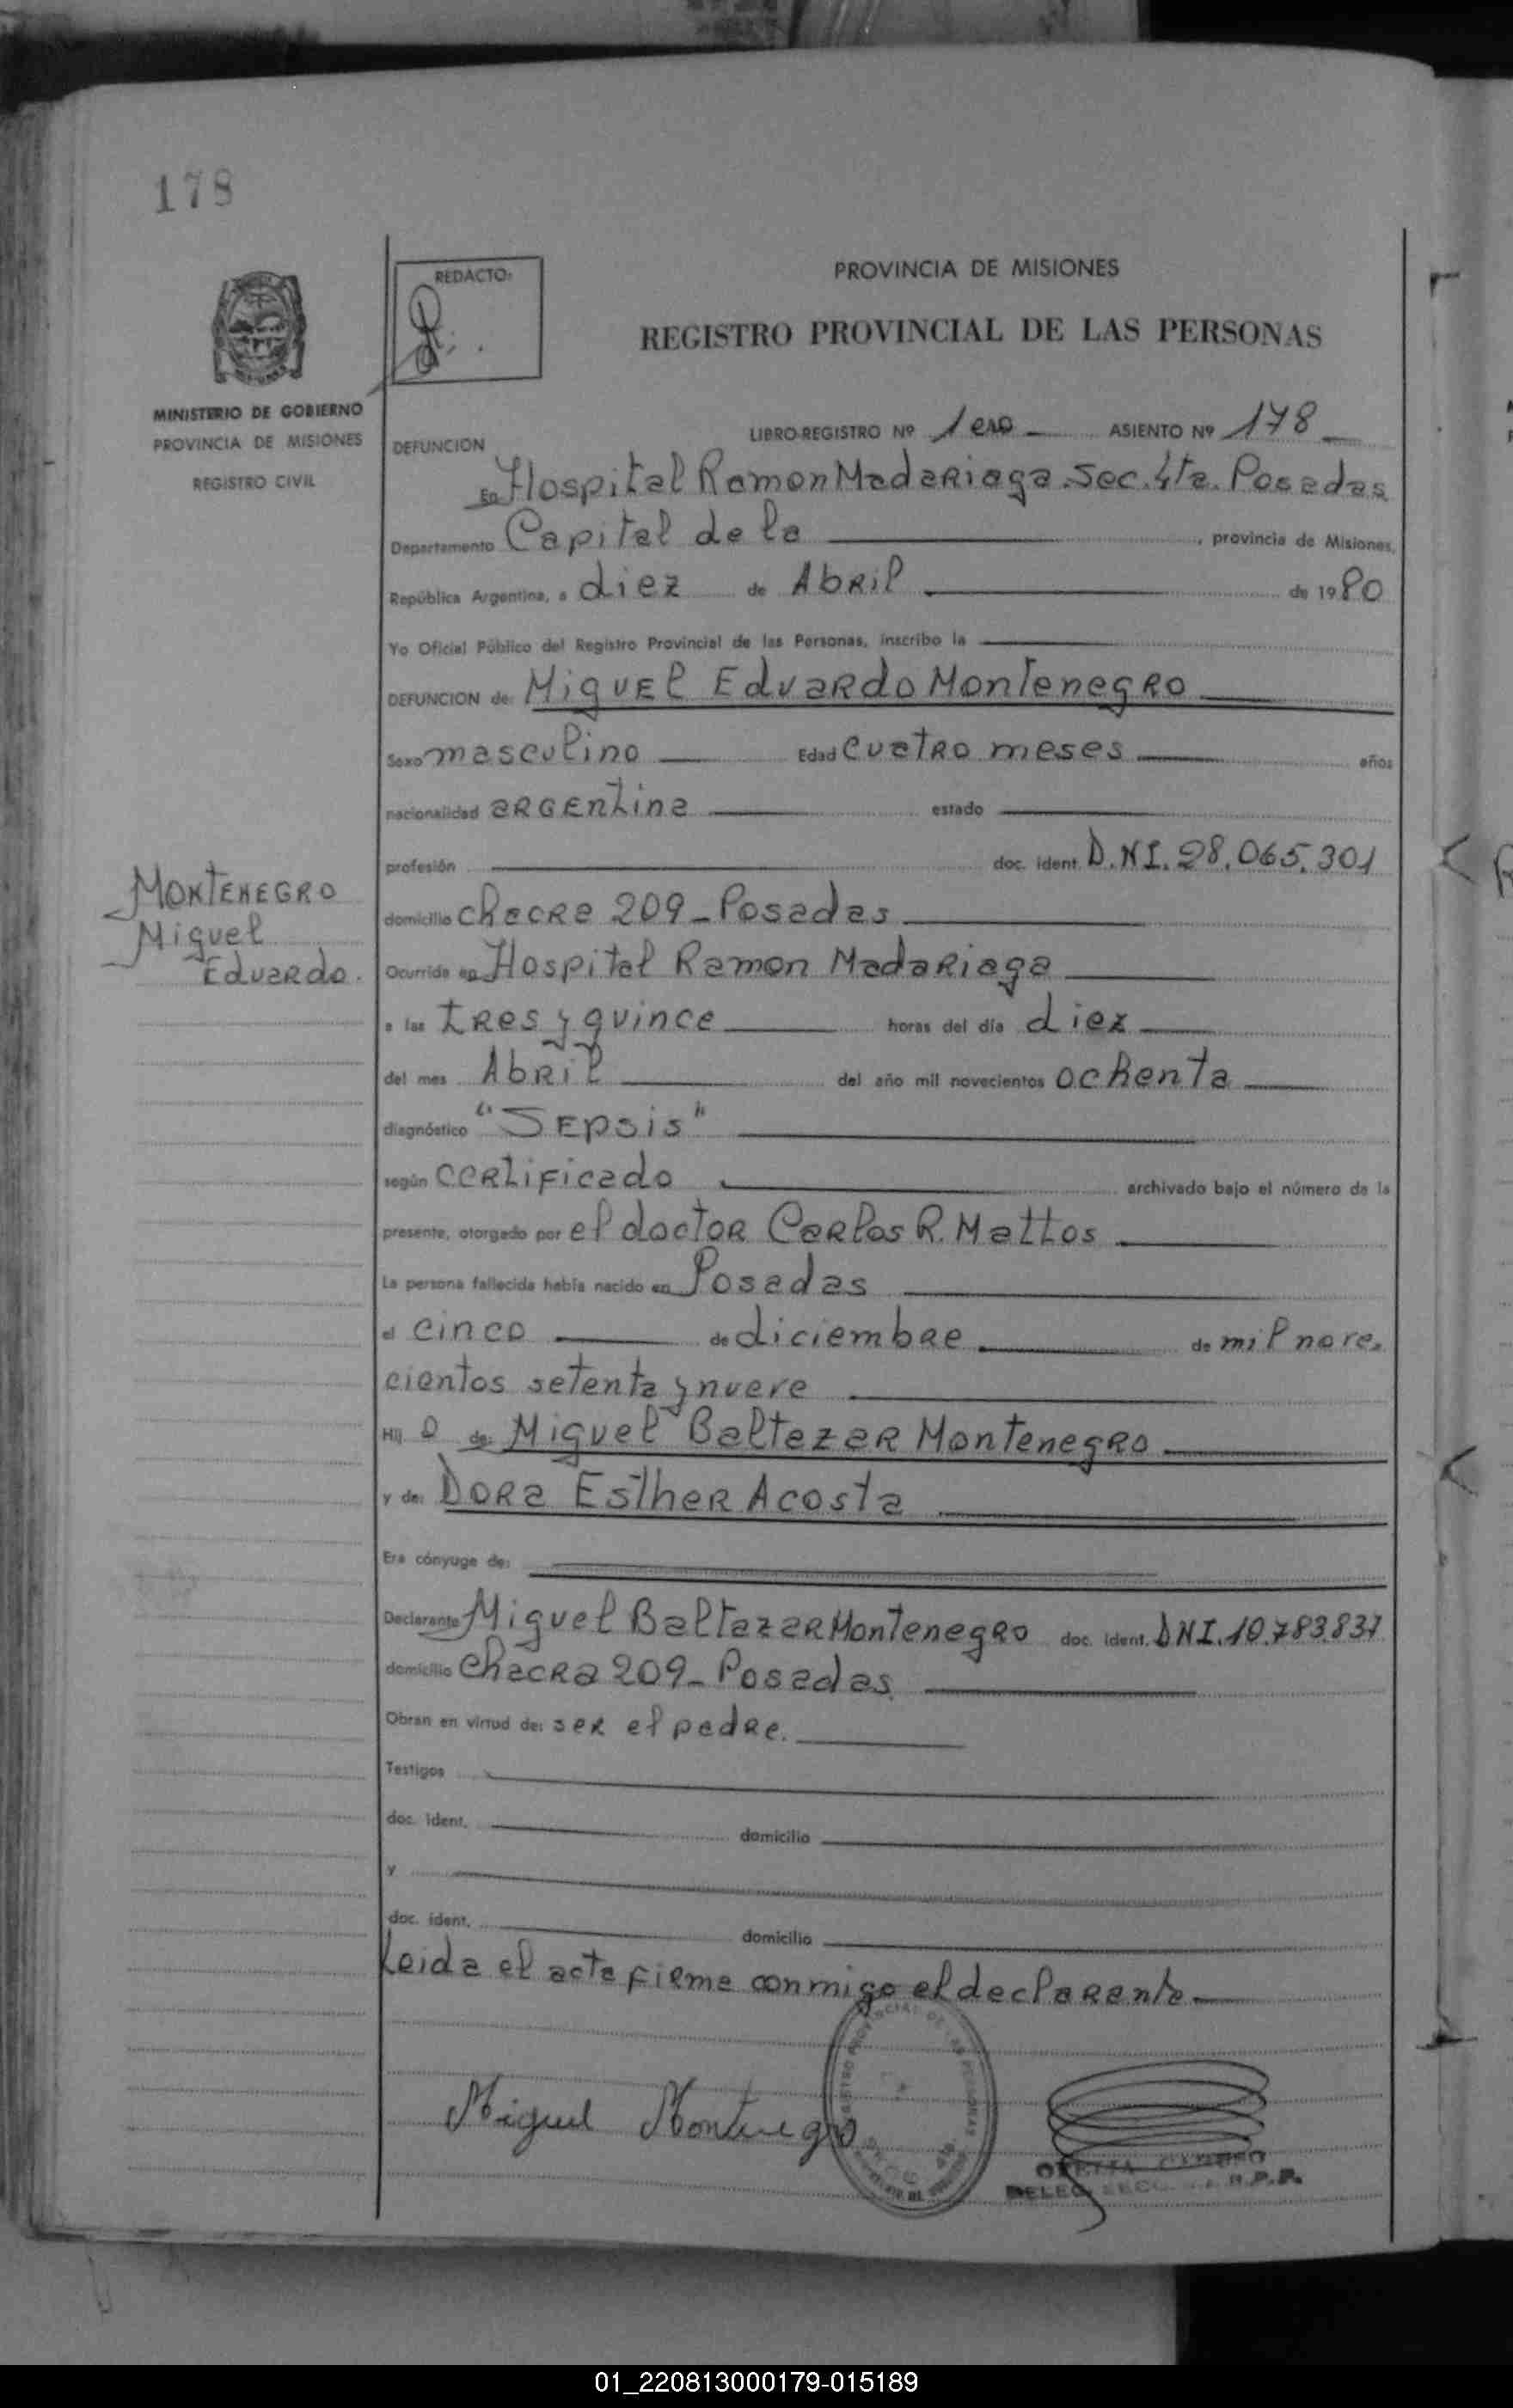 178
REDACTO:
PROVINCIA DE MISIONES
REGISTRO PROVINCIAL DE LAS PERSONAS
MINISTERIO DE GOBIERNO
PROVINCIA DE MISIONES
REGISTRO CIVIL
LIBRO-REGISTRO Nº 1ero ASIENTO Nº 178
DEFUNCION
En Hospital Ramon Madariaga. Sec. 4ta. Posadas
Departamento Capital de la , provincia de Misiones,
República Argentina, a diez de Abril de 1980
Yo Oficial Público del Registro Provincial de las Personas, inscribo la
DEFUNCION de: Miguel Eduardo Montenegro
Sexo masculino Edad Cuatro meses años
nacionalidad argentina estado
profesión doc. ident. D.N.I. 28.065.301
MONTENEGRO
Miguel
Eduardo.
domicilio chacra 209 - Posadas
Ocurrida en Hospital Ramon Madariaga
a las tres y quince horas del día diez
del mes Abril del año mil novecientos ochenta
diagnóstico "Sepsis"
según certificado archivado bajo el número de la
presente, otorgado por el doctor Carlos R. Mattos
La persona fallecida había nacido en Posadas
el cinco de diciembre de mil nove-
cientos setenta y nueve
Hij o de: Miguel Baltazar Montenegro
y de: Dora Esther Acosta
Era cónyuge de:
Declarante Miguel Baltazar Montenegro doc. ident. DNI. 10.783.837
domicilio Chacra 209 - Posadas
Obran en virtud de: ser el padre.
Testigos
doc. ident. domicilio
y
doc. ident. domicilio
Leida el acta firma conmigo el declarante
Miguel Montenegro
R.P.P.
01_220813000179-015189